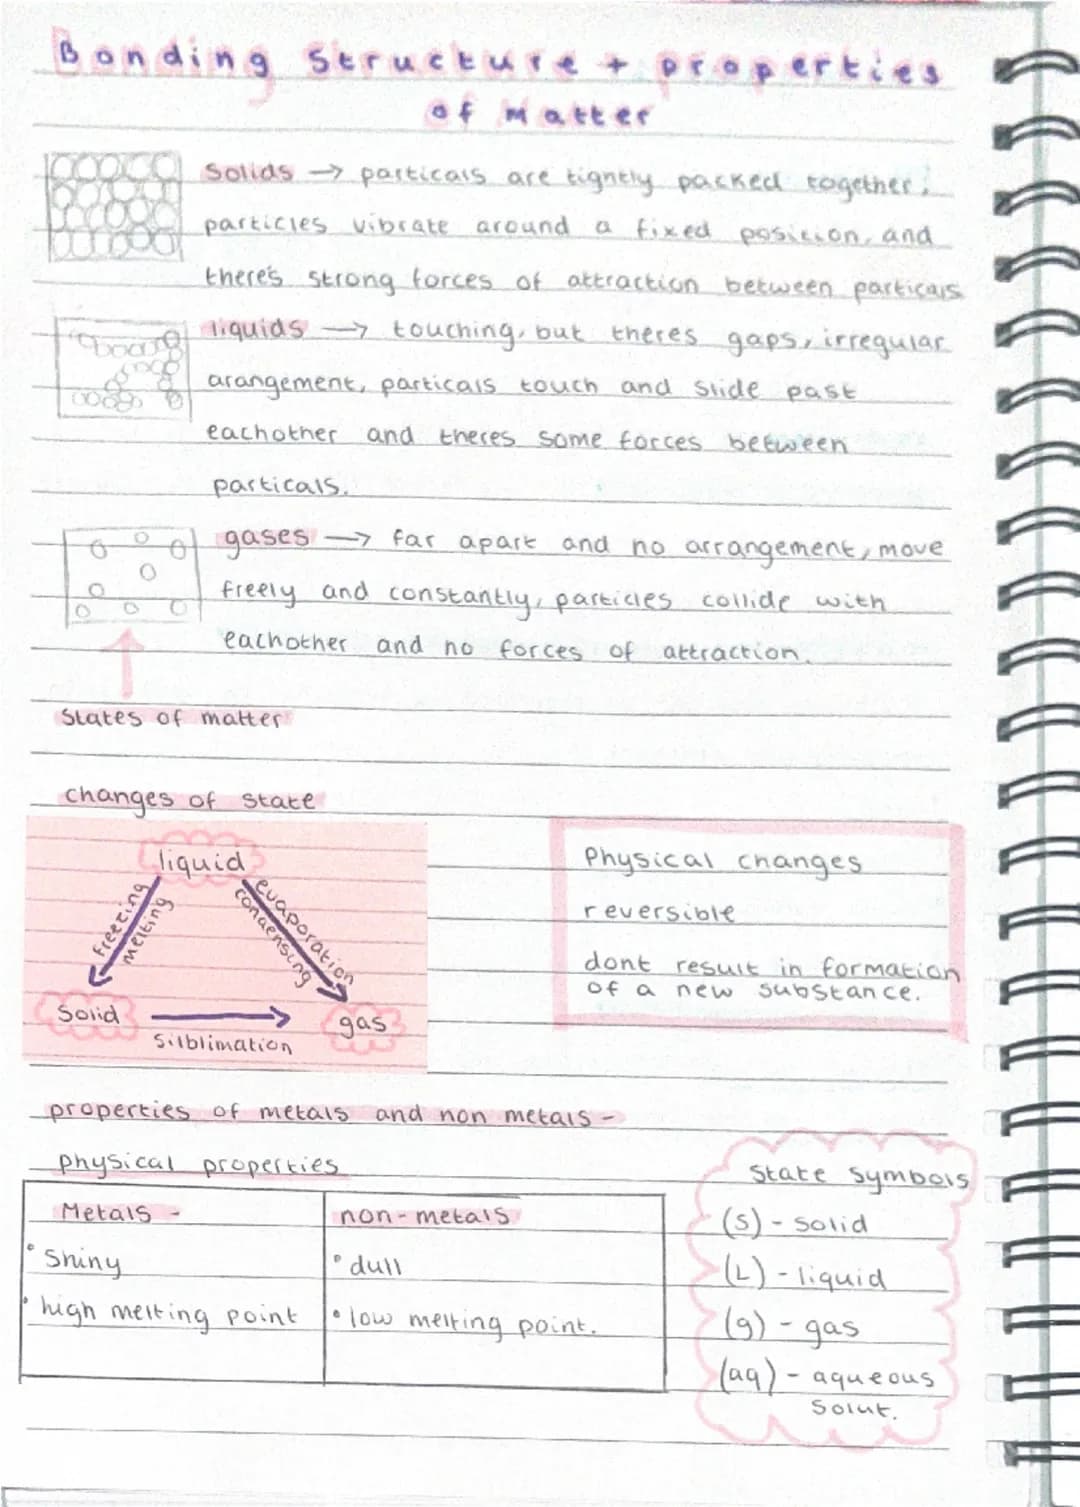 Bonding Structure + properties
of Matter
Solids → particals are tightly packed together,
particles vibrate around a fixed position, and
there's strong forces of attraction between particals
liquids → touching, but theres gaps, irregular
arangement, particals touch and slide past
eachother and theres some forces between
particals.
gases → far apart and no arrangement, move
freely and constantly, particles collide with
eachother and no forces of attraction.
States of matter
changes of state
liquid
freezing
melting
evaporation
condensing
Solid
gas
Silblimation
Physical changes
reversible
dont result in formation
of a new substance.
properties of metals and non metals -
physical properties
Metals -
• Shiny
• high melting point
non-metals
• dull
• low melting point.
State Symbols
(S) - Solid
(L) - liquid
(g) - gas
(aq) - aqueous
Solut.